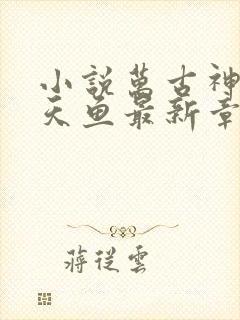 小說萬古神
天鱼最新章
蔣從雲